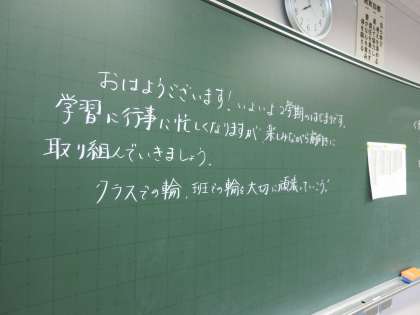 おはようございます！いよいよ2学期のはじまりです。
学習に行事に忙しくなりますが、楽しみながら
取り組んでいきましょう。
クラスでの輪、班での輪を大切に頑張っていこう！